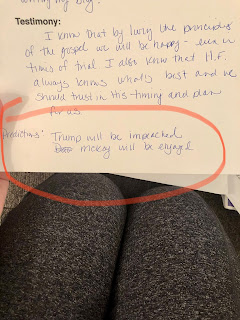 writing my bday!
Testimony:
I know that by living the principles
of the gospel we will be happy - even in
times of trial I also know that H.F.
always knows what's best and we
should trust in His timing and plan
for us
Predictions: Trump will be impeached
mckay will be engaged